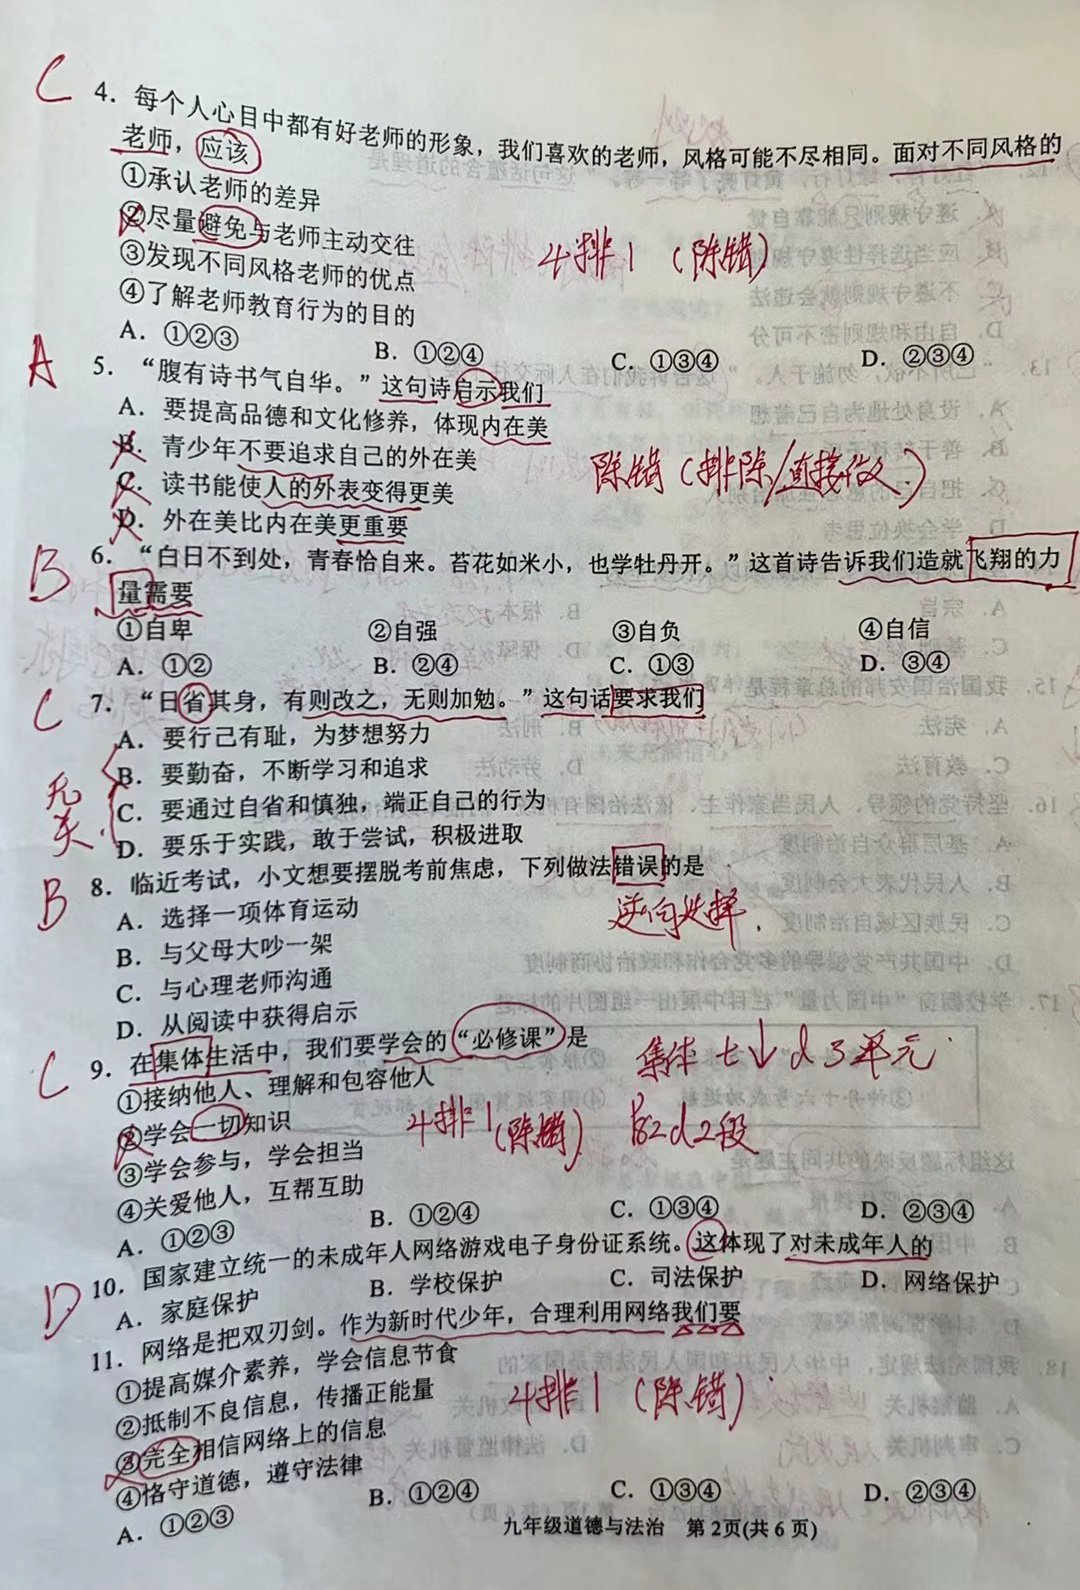 C
4. 每个人心目中都有好老师的形象，我们喜欢的老师，风格可能不尽相同。面对不同风格的
老师，应该
①承认老师的差异
②尽量避免与老师主动交往
③发现不同风格老师的优点
4排1（除错）
④了解老师教育行为的目的
A. ①②③ B. ①②④ C. ①③④ D. ②③④
A
5. “腹有诗书气自华。”这句诗启示我们
A. 要提高品德和文化修养，体现内在美
B. 青少年不要追求自己的外在美
除错（排除/直接依文）
C. 读书能使人的外表变得更美
D. 外在美比内在美更重要
B
6. “白日不到处，青春恰自来。苔花如米小，也学牡丹开。”这首诗告诉我们造就飞翔的力
量需要
①自卑 ②自强 ③自负 ④自信
A. ①② B. ②④ C. ①③ D. ③④
C
7. “日省其身，有则改之，无则加勉。”这句话要求我们
A. 要行己有耻，为梦想努力
B. 要勤奋，不断学习和追求
无关
C. 要通过自省和慎独，端正自己的行为
D. 要乐于实践，敢于尝试，积极进取
B
8. 临近考试，小文想要摆脱考前焦虑，下列做法错误的是
逆向选择.
A. 选择一项体育运动
B. 与父母大吵一架
C. 与心理老师沟通
D. 从阅读中获得启示
C
9. 在集体生活中，我们要学会的“必修课”是
集体 七下 d3单元
①接纳他人、理解和包容他人
②学会一切知识
4排1（除错） d2段
③学会参与，学会担当
④关爱他人，互帮互助
A. ①②③ B. ①②④ C. ①③④ D. ②③④
D
10. 国家建立统一的未成年人网络游戏电子身份证系统。这体现了对未成年人的
A. 家庭保护 B. 学校保护 C. 司法保护 D. 网络保护
11. 网络是把双刃剑。作为新时代少年，合理利用网络我们要
①提高媒介素养，学会信息节食
②抵制不良信息，传播正能量
4排1（除错）
③完全相信网络上的信息
④恪守道德，遵守法律
A. ①②③ B. ①②④ C. ①③④ D. ②③④
九年级道德与法治 第2页(共6页)